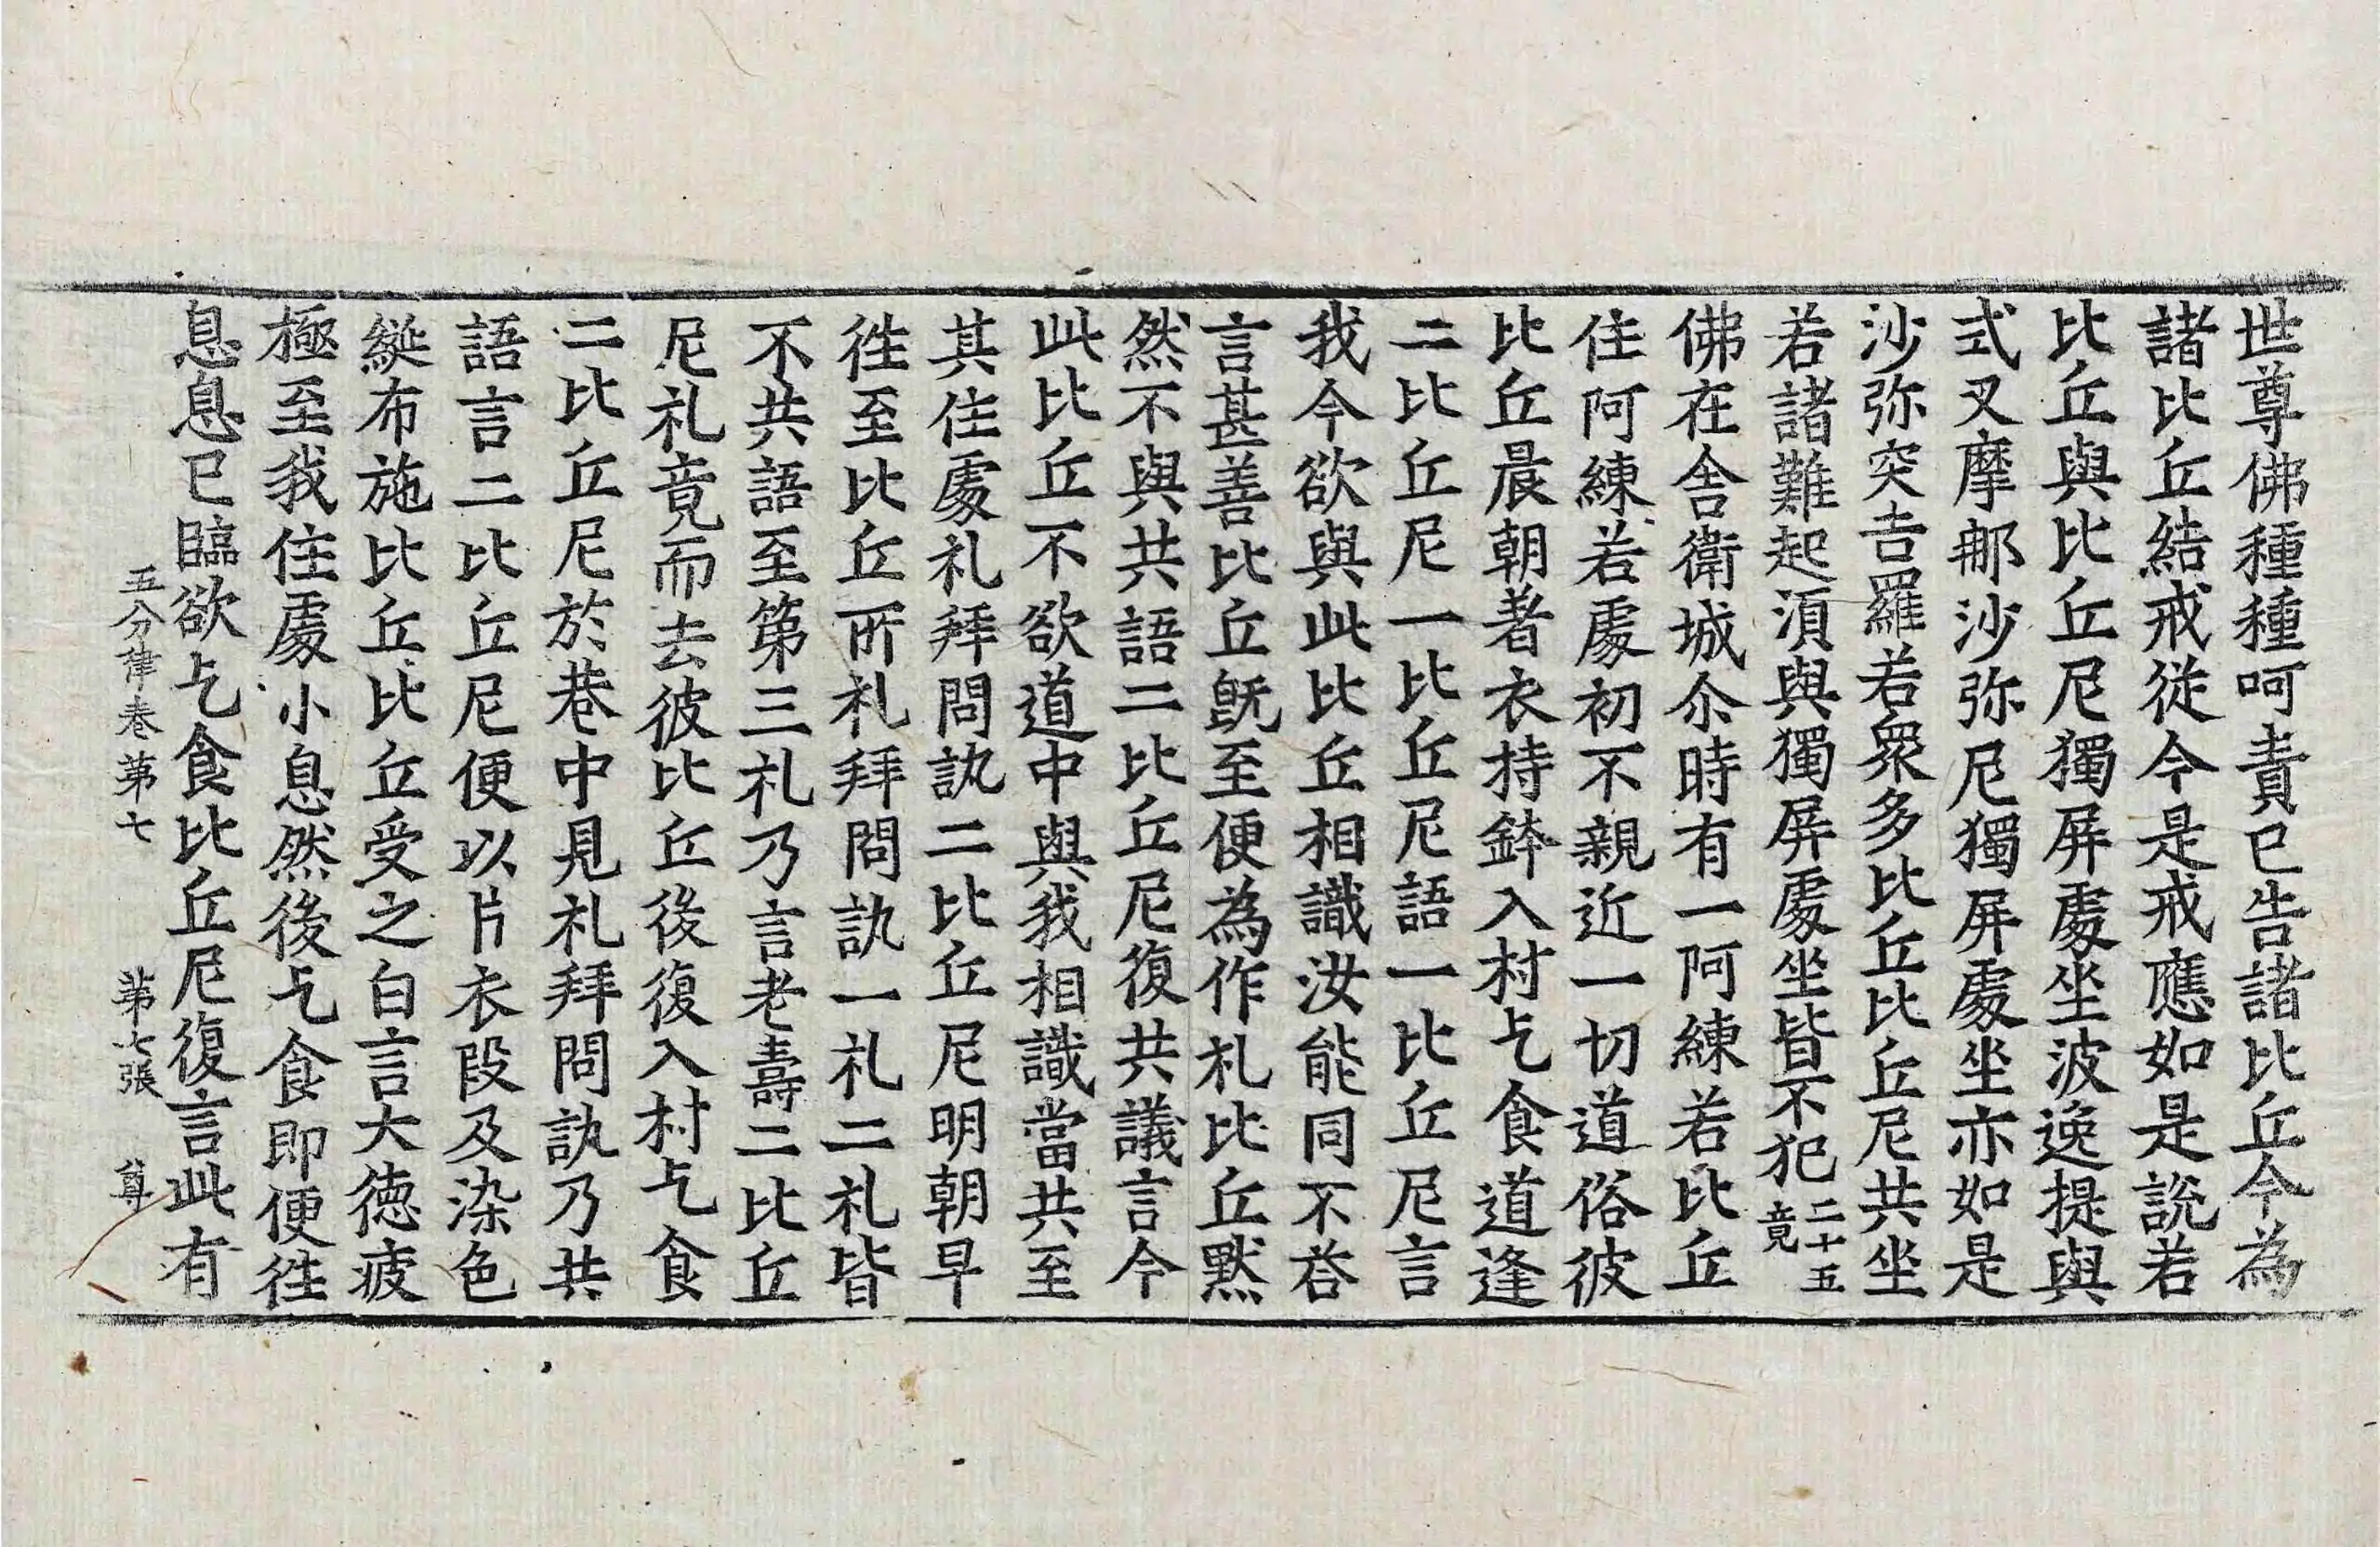 世尊佛種種呵責已告諸比丘今為
諸比丘結戒從今是戒應如是說若
比丘與比丘尼獨屏處坐波逸提與
式叉摩那沙弥尼獨屏處坐亦如是
沙弥突吉羅若衆多比丘比丘尼共坐
若諸難起湏與獨屏處坐皆不犯二十五竟
佛在舍衛城尒時有一阿練若比丘
住阿練若處初不親近一切道俗彼
比丘晨朝著衣持鉢入村乞食道逢
二比丘尼一比丘尼語一比丘尼言
我今欲與此比丘相識汝能同不荅
言甚善比丘既至便為作礼比丘黙
然不與共語二比丘尼復共議言今
此比丘不欲道中與我相識當共至
其住處礼拜問訊二比丘尼明朝早
徃至比丘所礼拜問訊一礼二礼皆
不共語至第三礼乃言老壽二比丘
尼礼竟而去彼比丘後復入村乞食
二比丘尼於巷中見礼拜問訊乃共
語言二比丘尼便以片衣段及染色
綖布施比丘比丘受之白言大德疲
極至我住處小息然後乞食即便徃
息息已臨欲乞食比丘尼復言此有
五分律卷第七 第七張 尊